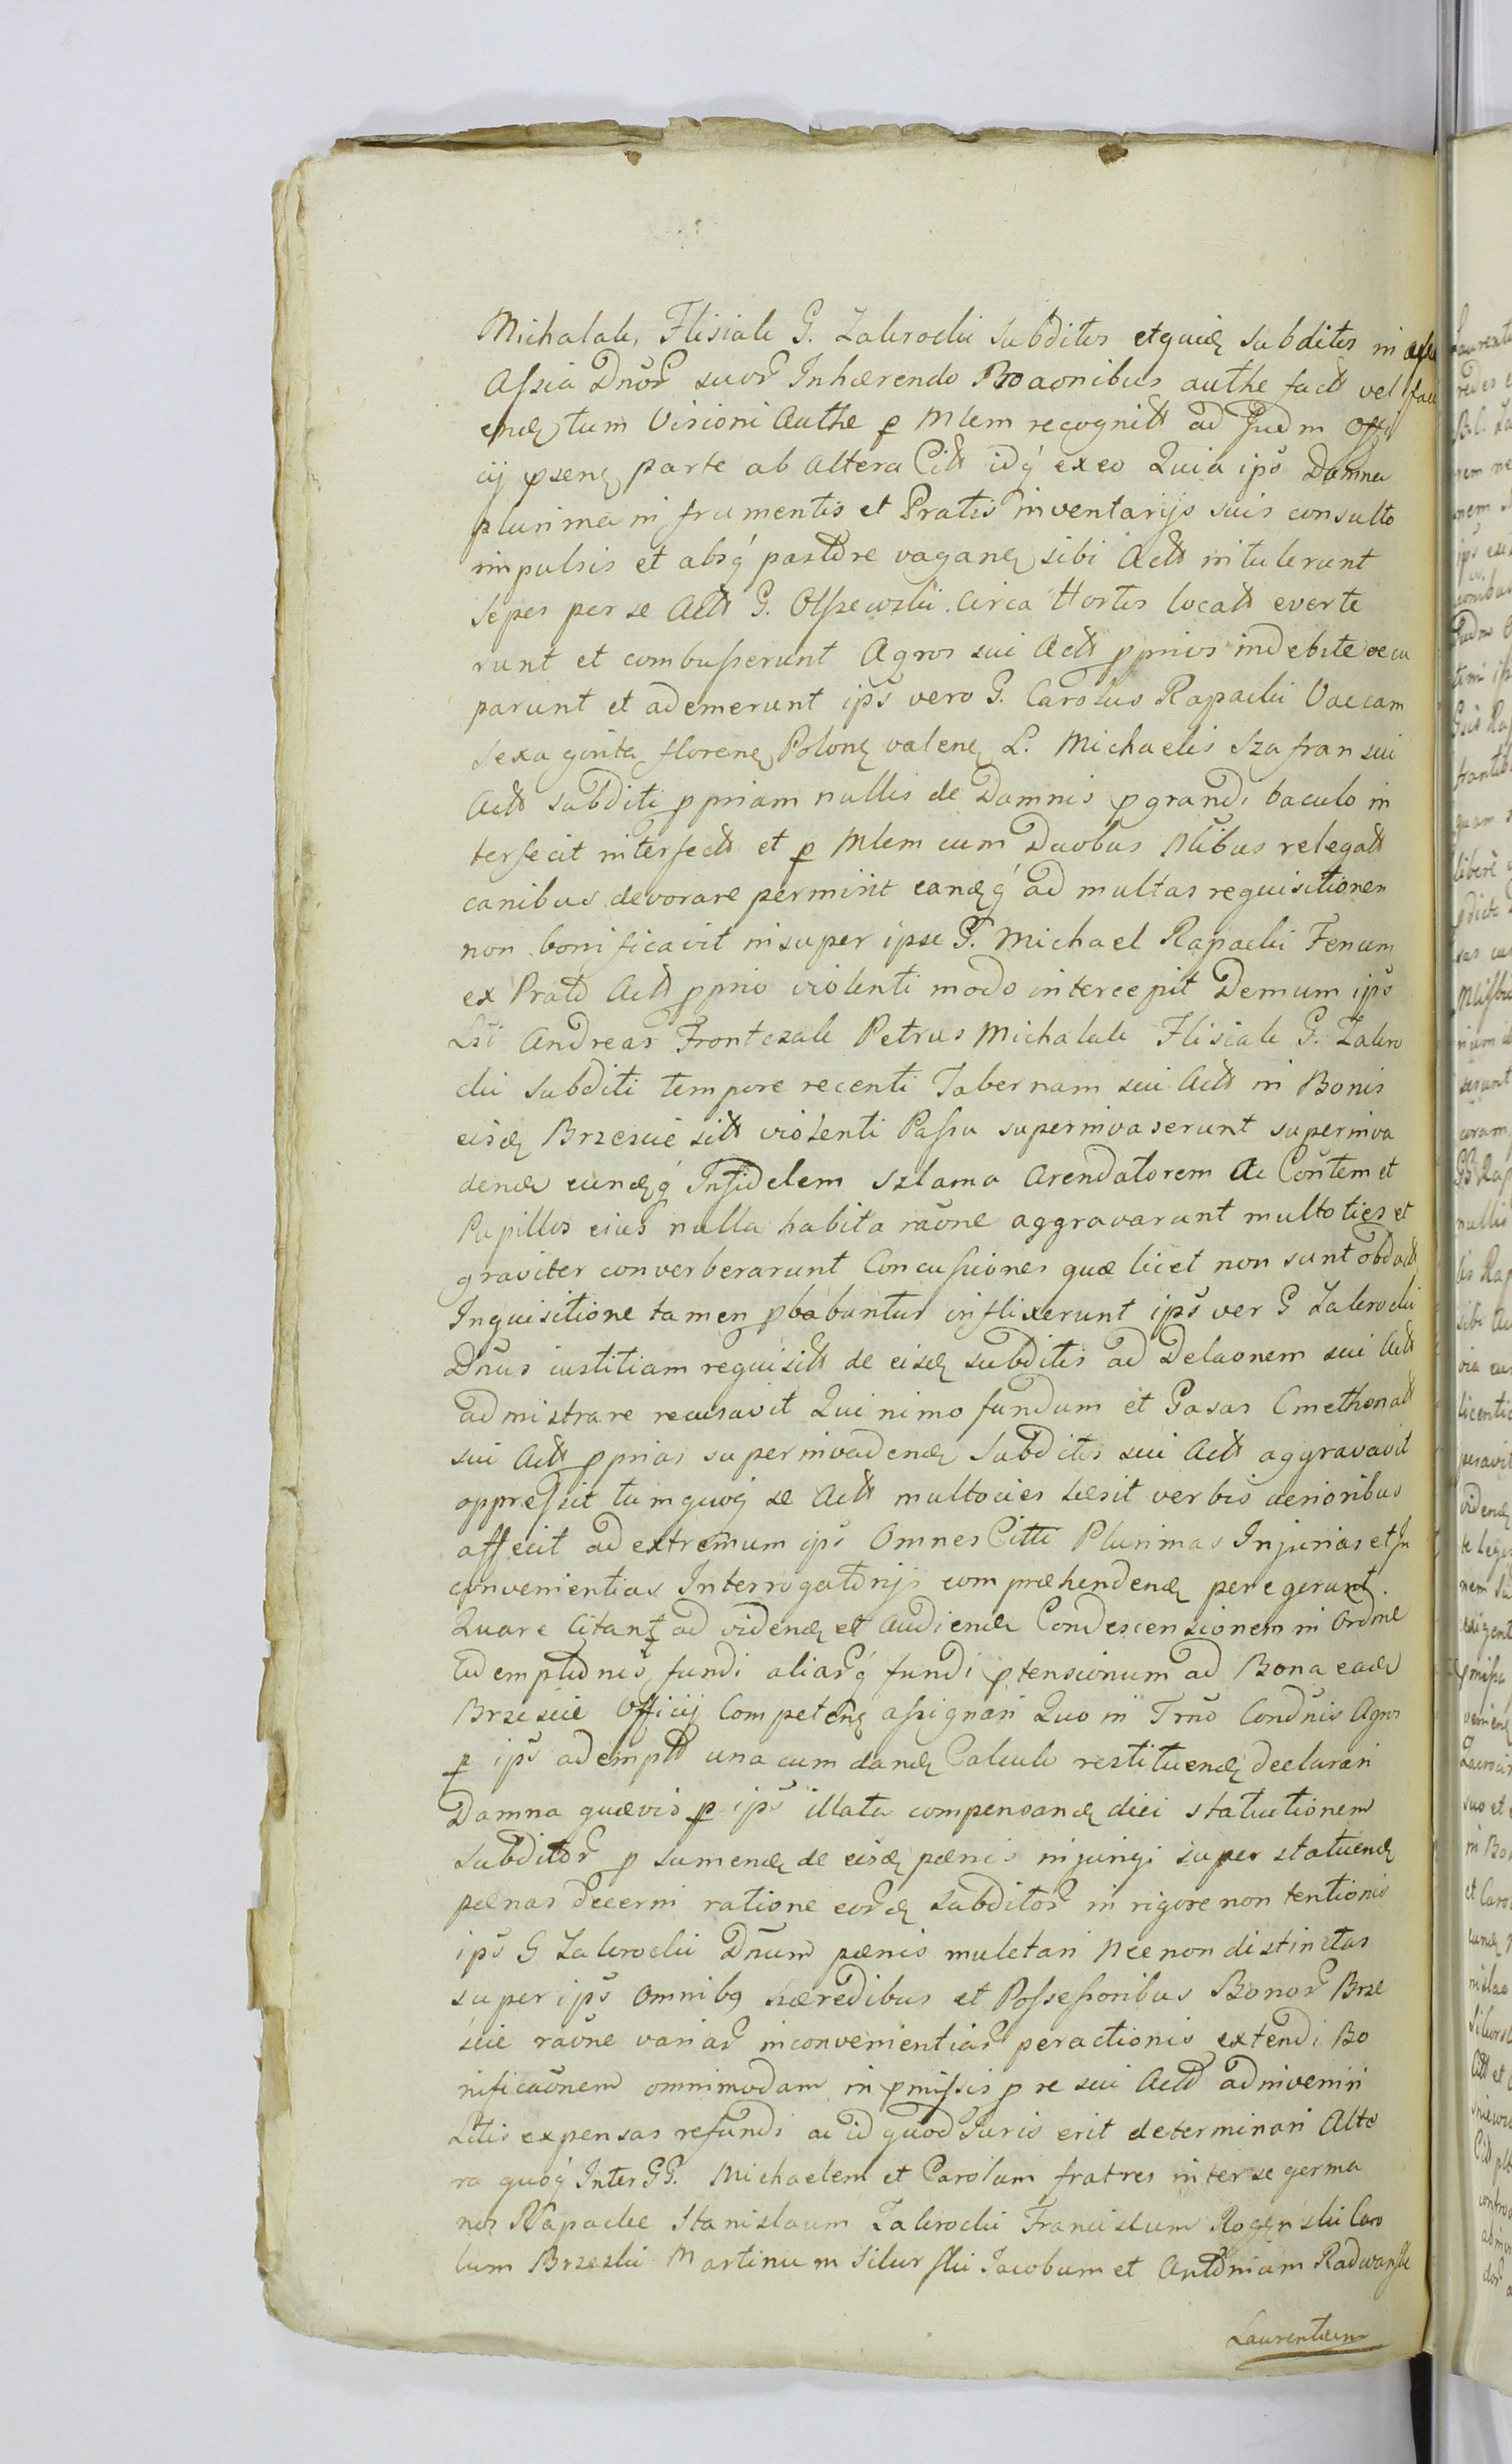 Michalak, Flisiak G. Zakrocki Subditos etquidę Subditos in
Assia Dnōr suōr Inhærendo Proaonibus authe fact vel
endę tum Visioni Authe p Mlem recognitt ad Judm Offi
cij psenę parte ab altera Citt idq́ ex eo Quia ipś Damna
plurima in frumentis et Pratis inventarijs suis consulto
impulsis et absq́ pastore vaganę sibi Actt intulerunt
Sepes per se Actt G. Olszewski circa Hortos locatt everte
runt et combusserunt Agros sui Actt pprios indebite occu
parunt et ademerunt ipś vero G. Carolus Rapacki Vaccam
sexaginta florenę Polonę valenę L. Michaelis Szafran sui
Actt subditi ppriam nullis de Damnis pgrandi baculo in
terfecit interfectt et p Mlem cum Duobus Nlibus relegatt
canibus devorare permisit eandęq́ ad multas requisitiones
non bonificavit insuper ipse G. Michael Rapacki Fenum
ex Prato Actt pprio violenti modo intercepit Demum ipś
Lsi Andreas Frontczak Petrus Michalak Flisiak G. Zakro
cki Subditi tempore recenti Tabernam sui Actt in Bonis
eisdę Brzescie sitt violenti Passu superinvaserunt superinva
dendę eundęq́ Infidelem Szlama Arendatorem Ac Contem et
Pupillos eius nulla habita raōne aggravarunt multoties et
graviter converberarunt Concussiones quæ licet non sunt obdact
Inquisitione tamen pbabuntur inflixerunt ipś ver G Zakrocki
Dnūs iustitiam requisitt de eisdę subditis ad Delaonem sui Actt
admistrare recusavit Quinimo fundum et Casas Cmethonatt
sui Actt pprias superinvadendę Subditos sui Actt aggravavit
oppressit tumquoq́ se Actt multocies læsit verbis acrioribus
affecit ad extremum ipś Omnes Citti Plurimas Injurias et In
convenientias Interrogatorijs compræhendendę peregerunt.
Quare Citantʒ ad videndę et Audiendę Condescensionem in Ordine
Ademptionis fundi aliarq́ fundi ptensionum ad Bona eadę
Brzescie Officij Competenę assignari Quo in Trnō Condnis Agros
p ipś adempttt una cum dandę Calculo restituendę declarari
Damna quævis p ipś illata compensandę dici statutionem
subditor p sumendę de eisdę pœnis injungi super statuendę
pœnas decerni ratione eordę subditor in rigore non tentionis
ipś G Zakrocki Dnūm pœnis mulctari Necnon distinctas
super ipś omnibg hæredibus et Possessoribus Bonor Brze
scie raōne variar inconvenientiar peractionis extendi Bo
nificaōnem omnimodam in pmissis p re sui Actt adinveniri
Litis expensas refundi ac id quod Juris erit determinari Alte
ra quoq́ Inter GG. Michaelem et Carolum fratres inter se germa
nos Rapackie Stanislaum Zakrocki Franciscum Rogenski Caro
lum Brzeski Martinum Sikurski Jacobum et Antonium Radwanski
Laurentium